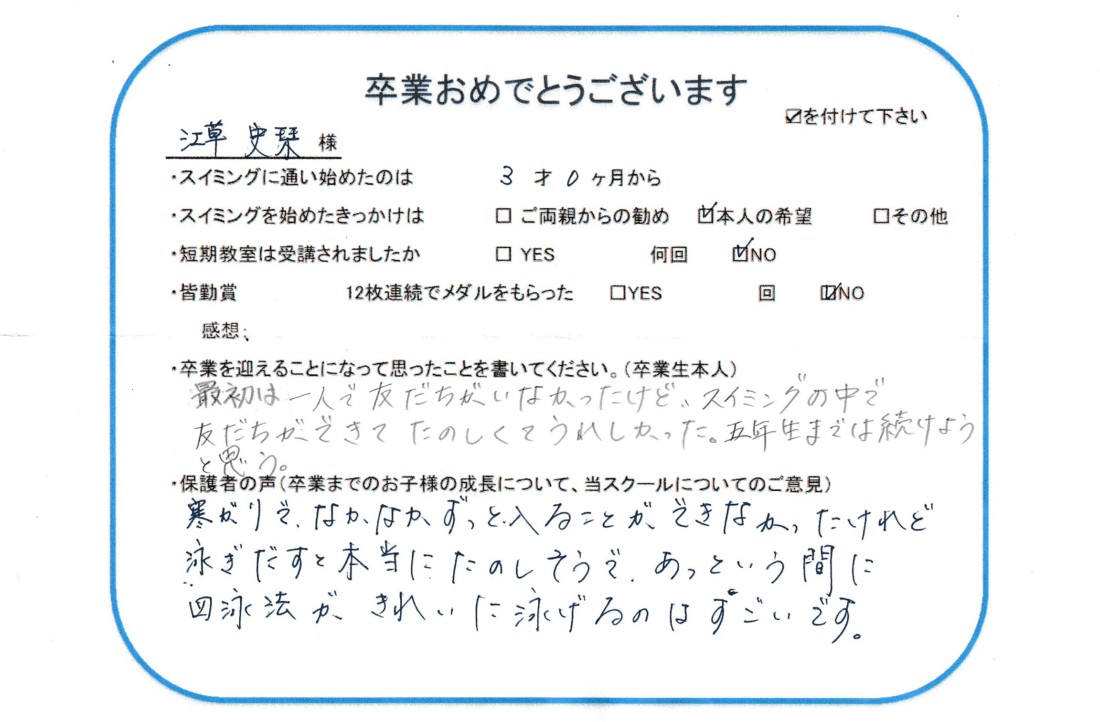 卒業おめでとうございます
☑を付けて下さい
江草 史栞 様
・スイミングに通い始めたのは 3 才 0 ヶ月から
・スイミングを始めたきっかけは □ ご両親からの勧め ☑本人の希望 □その他
・短期教室は受講されましたか □ YES 何回 ☑NO
・皆勤賞 12枚連続でメダルをもらった □YES 回 ☑NO
感想:
・卒業を迎えることになって思ったことを書いてください。(卒業生本人)
最初は一人で友だちがいなかったけど、スイミングの中で
友だちができてたのしくてうれしかった。五年生までは続けよう
と思う。
・保護者の声(卒業までのお子様の成長について、当スクールについてのご意見)
寒がりで、なかなかずっと入ることができなかったけれど
泳ぎだすと本当にたのしそうで、あっという間に
四泳法が、きれいに泳げるのはすごいです。